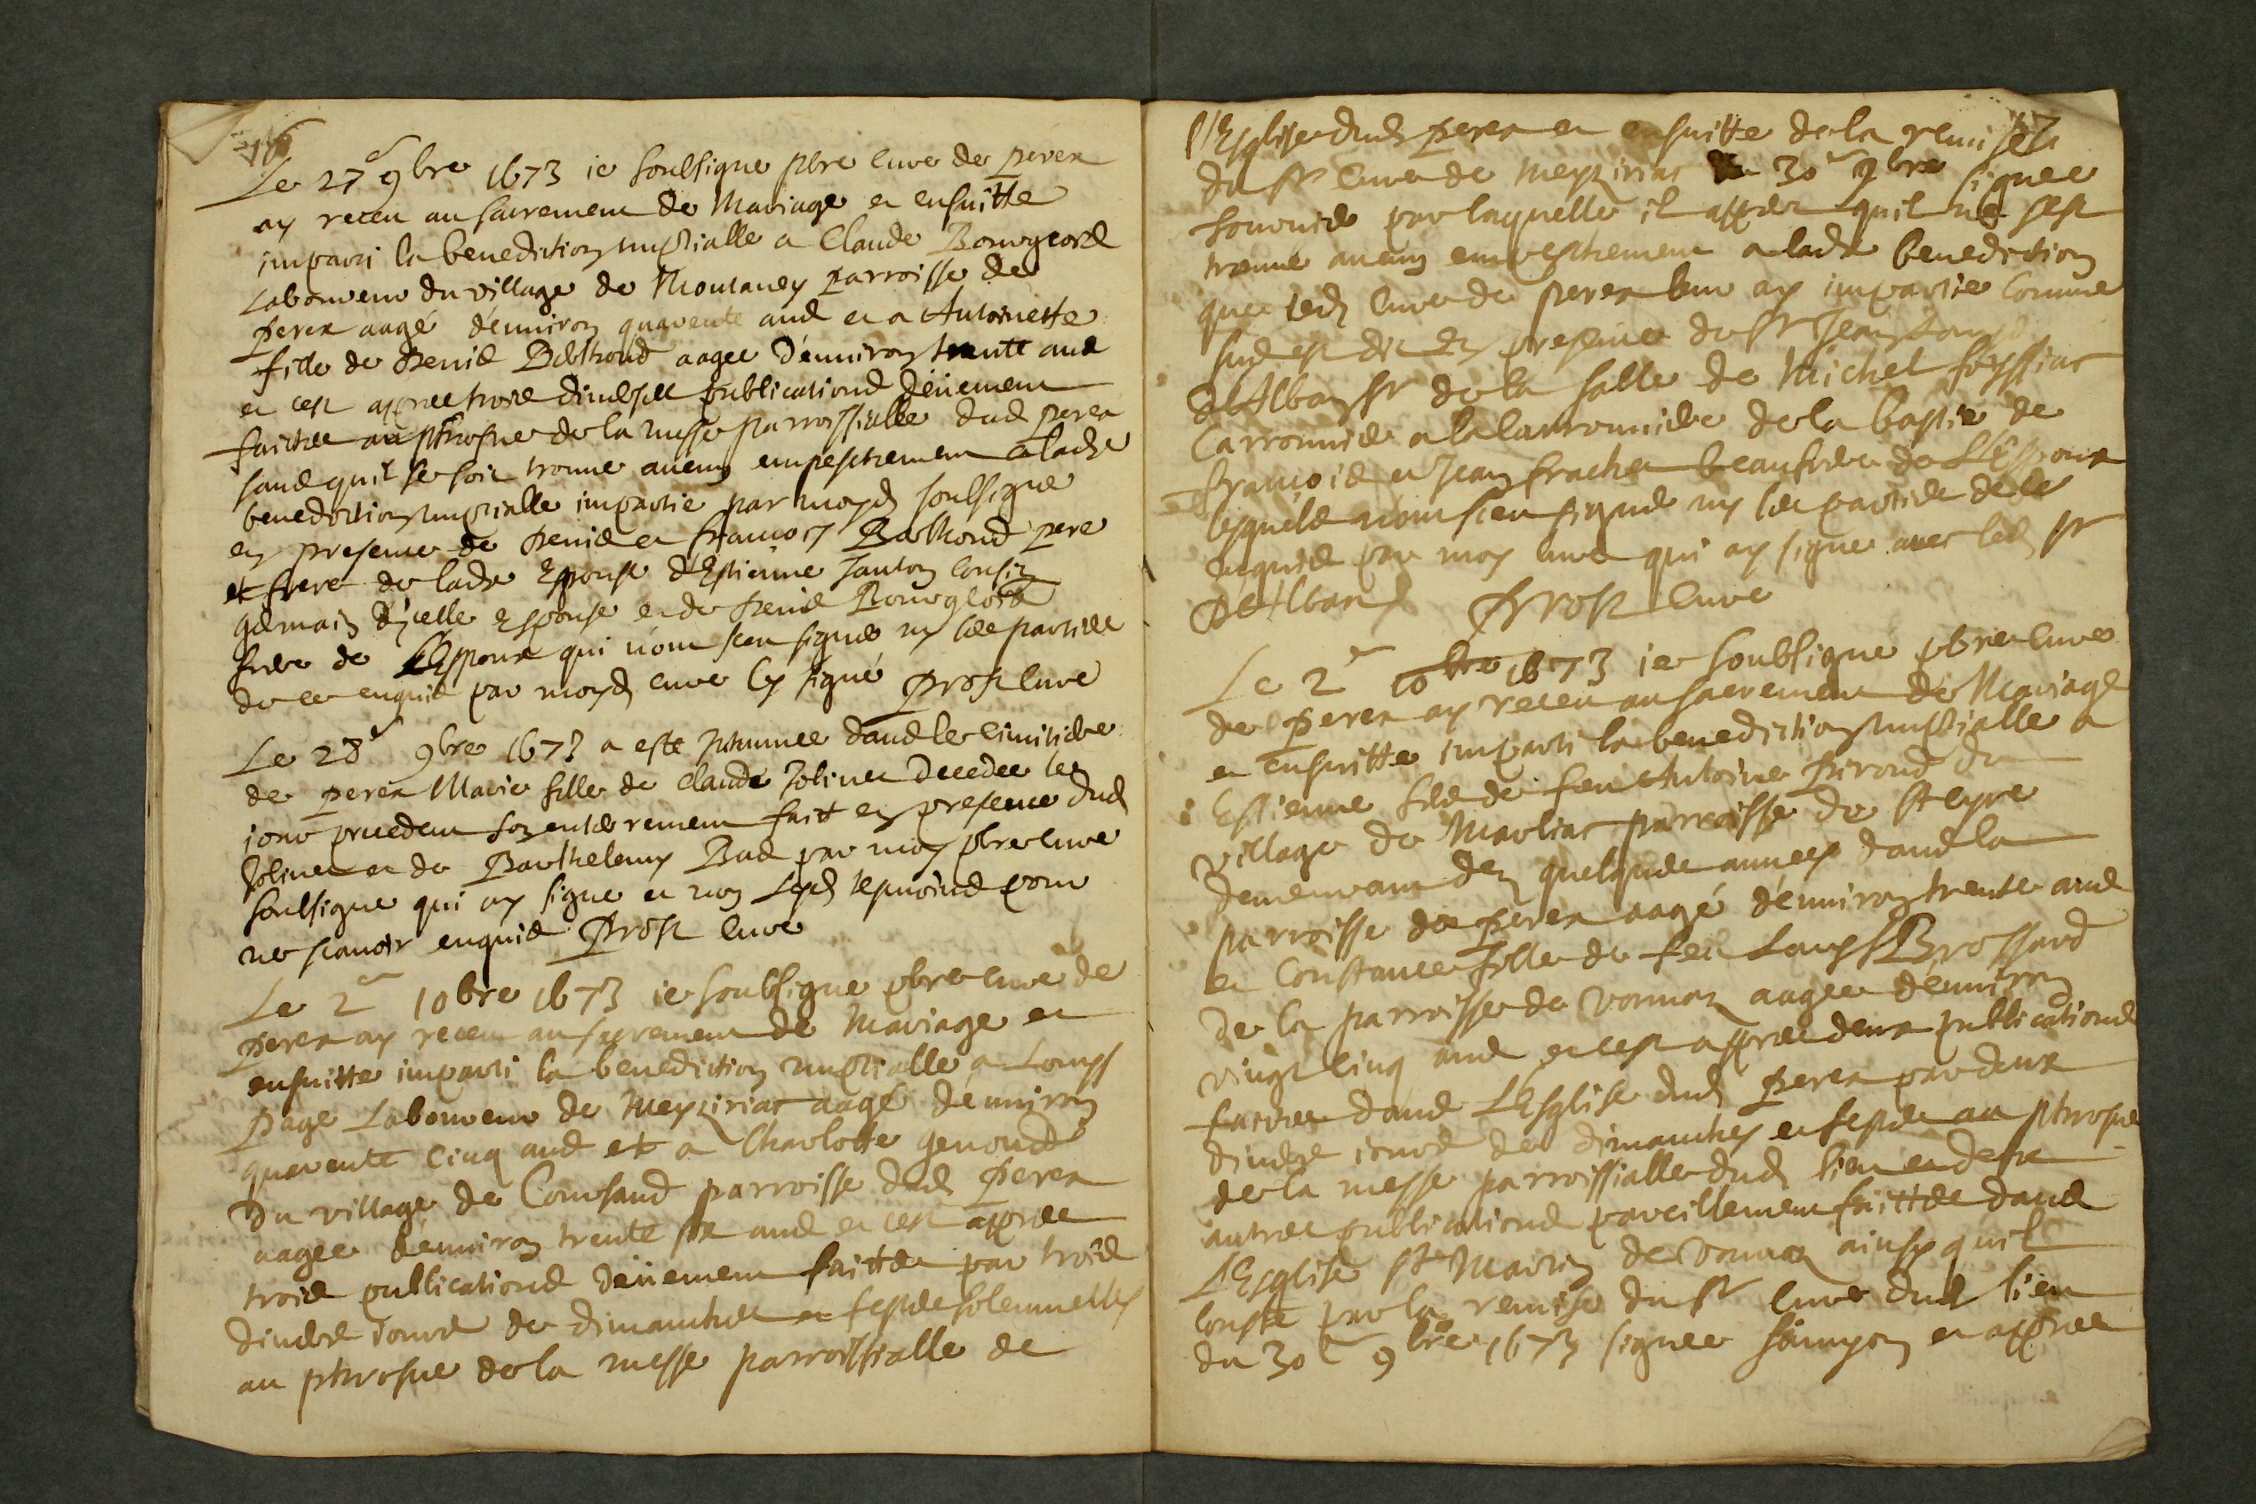 16
Le 27e 9bre 1673 ie soubsigne pbre cure de perex
ay receu au sacrement de Mariage et ensuitte
imparti la benediction nuptialle a Claude Bourgeord
Laboureur du village de Montaney parroisse de
perex aagé d'enuiron quarente ans et a Antoinette
fille de Denis Berthoud aagee d'enuiron trente ans
et cest apres trois diuerses publications deüement
faictes au prosne de la messe parroissialle dud perex
sans quil se soit trouué aucung empeschement a lade
benediction nuptialle impartie par moyd soubsigne
en presence de Denis et françois Berthoud pere
et frere de lade Espouse d'Estienne Janton cousin
germain d'icelle espouse et de Denis Bourgeord
frere de L'Espoux qui n'ont sceu signer ny les parties
de ce enquis par moyd cure cy signé Prost cure
Le 28e 9bre 1673 a esté inhumee dans le cimitiere
de perex Marie fille de Claude Joliuet decedee le
iour precedent son enterrement fait en presence dud
Joliuet et de Barthelemy Bad par moy pbre cure
soubsigne qui ay signe et non lesd tesmoins pour
ne scauoir enquis Prost cure
Le 2e 10bre 1673 ie soubsigne pbre cure de
perex ay receu au sacrement de Mariage et
ensuitte imparti la benediction nuptialle a Louys
Page Laboureur de Meyziriat aagé d'enuiron
quarente cinq ans et a Charlotte genoud
du village de Coursand parroisse dud Perex
aagee d'enuiron trente six ans et cest apres
trois publications deüement faittes par trois
diuers iours de dimanches et festes solemnelles
au prosne de la messe parroissialle de
L'Esglise dud perex et ensuitte de la remise
du Sr cure de Meyziriat du 30e 9bre signee
par laquelle il appert quil ne sest
trouué aucung empeschement a lade benediction
que ied cure de perex leur ay impartie comme
sus est dit en presence du Sr Jean Louys
D'Alban Sr de la salle de Michel foyssiat
de la bastie de
françois et Jean frachet beaufrere de L'Espoux
lesquels n'ont sceu signer ny les parties de ce
enquis par moy cure qui ay signe auec led Sr
D'Alban Prost cure
Le 2e 10bre 1673 ie soubsigne pbre cure
de perex ay receu au sacrement de Mariage
et ensuitte imparti la benediction nuptialle a
Estienne fils de feu Antoine Piroud du
village de Marliat parroisse de St Cyre
demeurant dez quelques annees dans la
parroisse de perex aagé d'enuiron trente ans
et Constance fille de feu Louys Brossard
de la parroisse de Vonnaz aagee d'enuiron
vingt cinq ans et cest apres deux publications
faictes dans L'Esglise dud perex par deux
diuers iours de dimanches et festes au prosne
de la messe parroissialle dud lieu et deux
autres publications pareillement faittes dans
L'Esglise St Martin de Vonnaz ainsy quil
conste par la remise du Sr cure dud lieu
du 30e 9bre 1673 signee Simyon et apres